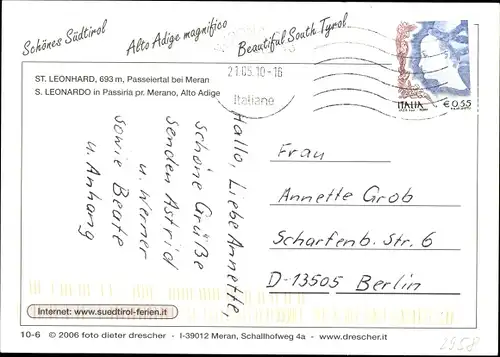 Schönes Südtirol
Alto Adige magnifico
Beautiful South Tyrol
ST. LEONHARD, 693 m, Passeiertal bei Meran
S. LEONARDO in Passiria pr. Merano, Alto Adige
21.05.10-16
Italiane
ITALIA
€ 0,55
Hallo, Liebe Annette,
schöne Grüße
senden Astrid
u. Werner
sowie Beate
u. Anhang
Frau
Annette Grob
Scharfenb. Str. 6
D-13505 Berlin
Internet: www.suedtirol-ferien.it
10-6 © 2006 foto dieter drescher - I-39012 Meran, Schallhofweg 4a - www.drescher.it
2958